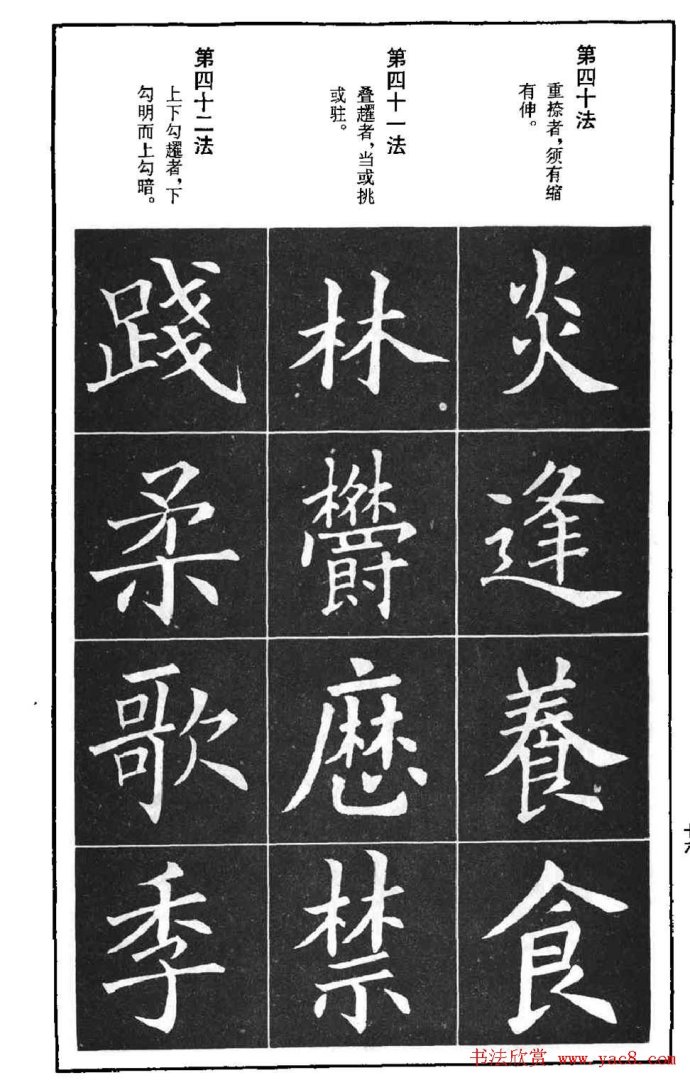 第四十法
重捺者，须有缩
有伸。
炎逢養食
第四十一法
叠趯者，当或挑
或驻。
林欎禁
第四十二法
上下勾趯者，下
勾明而上勾暗。
踐柔歌季
书法欣赏 www.yac8.com